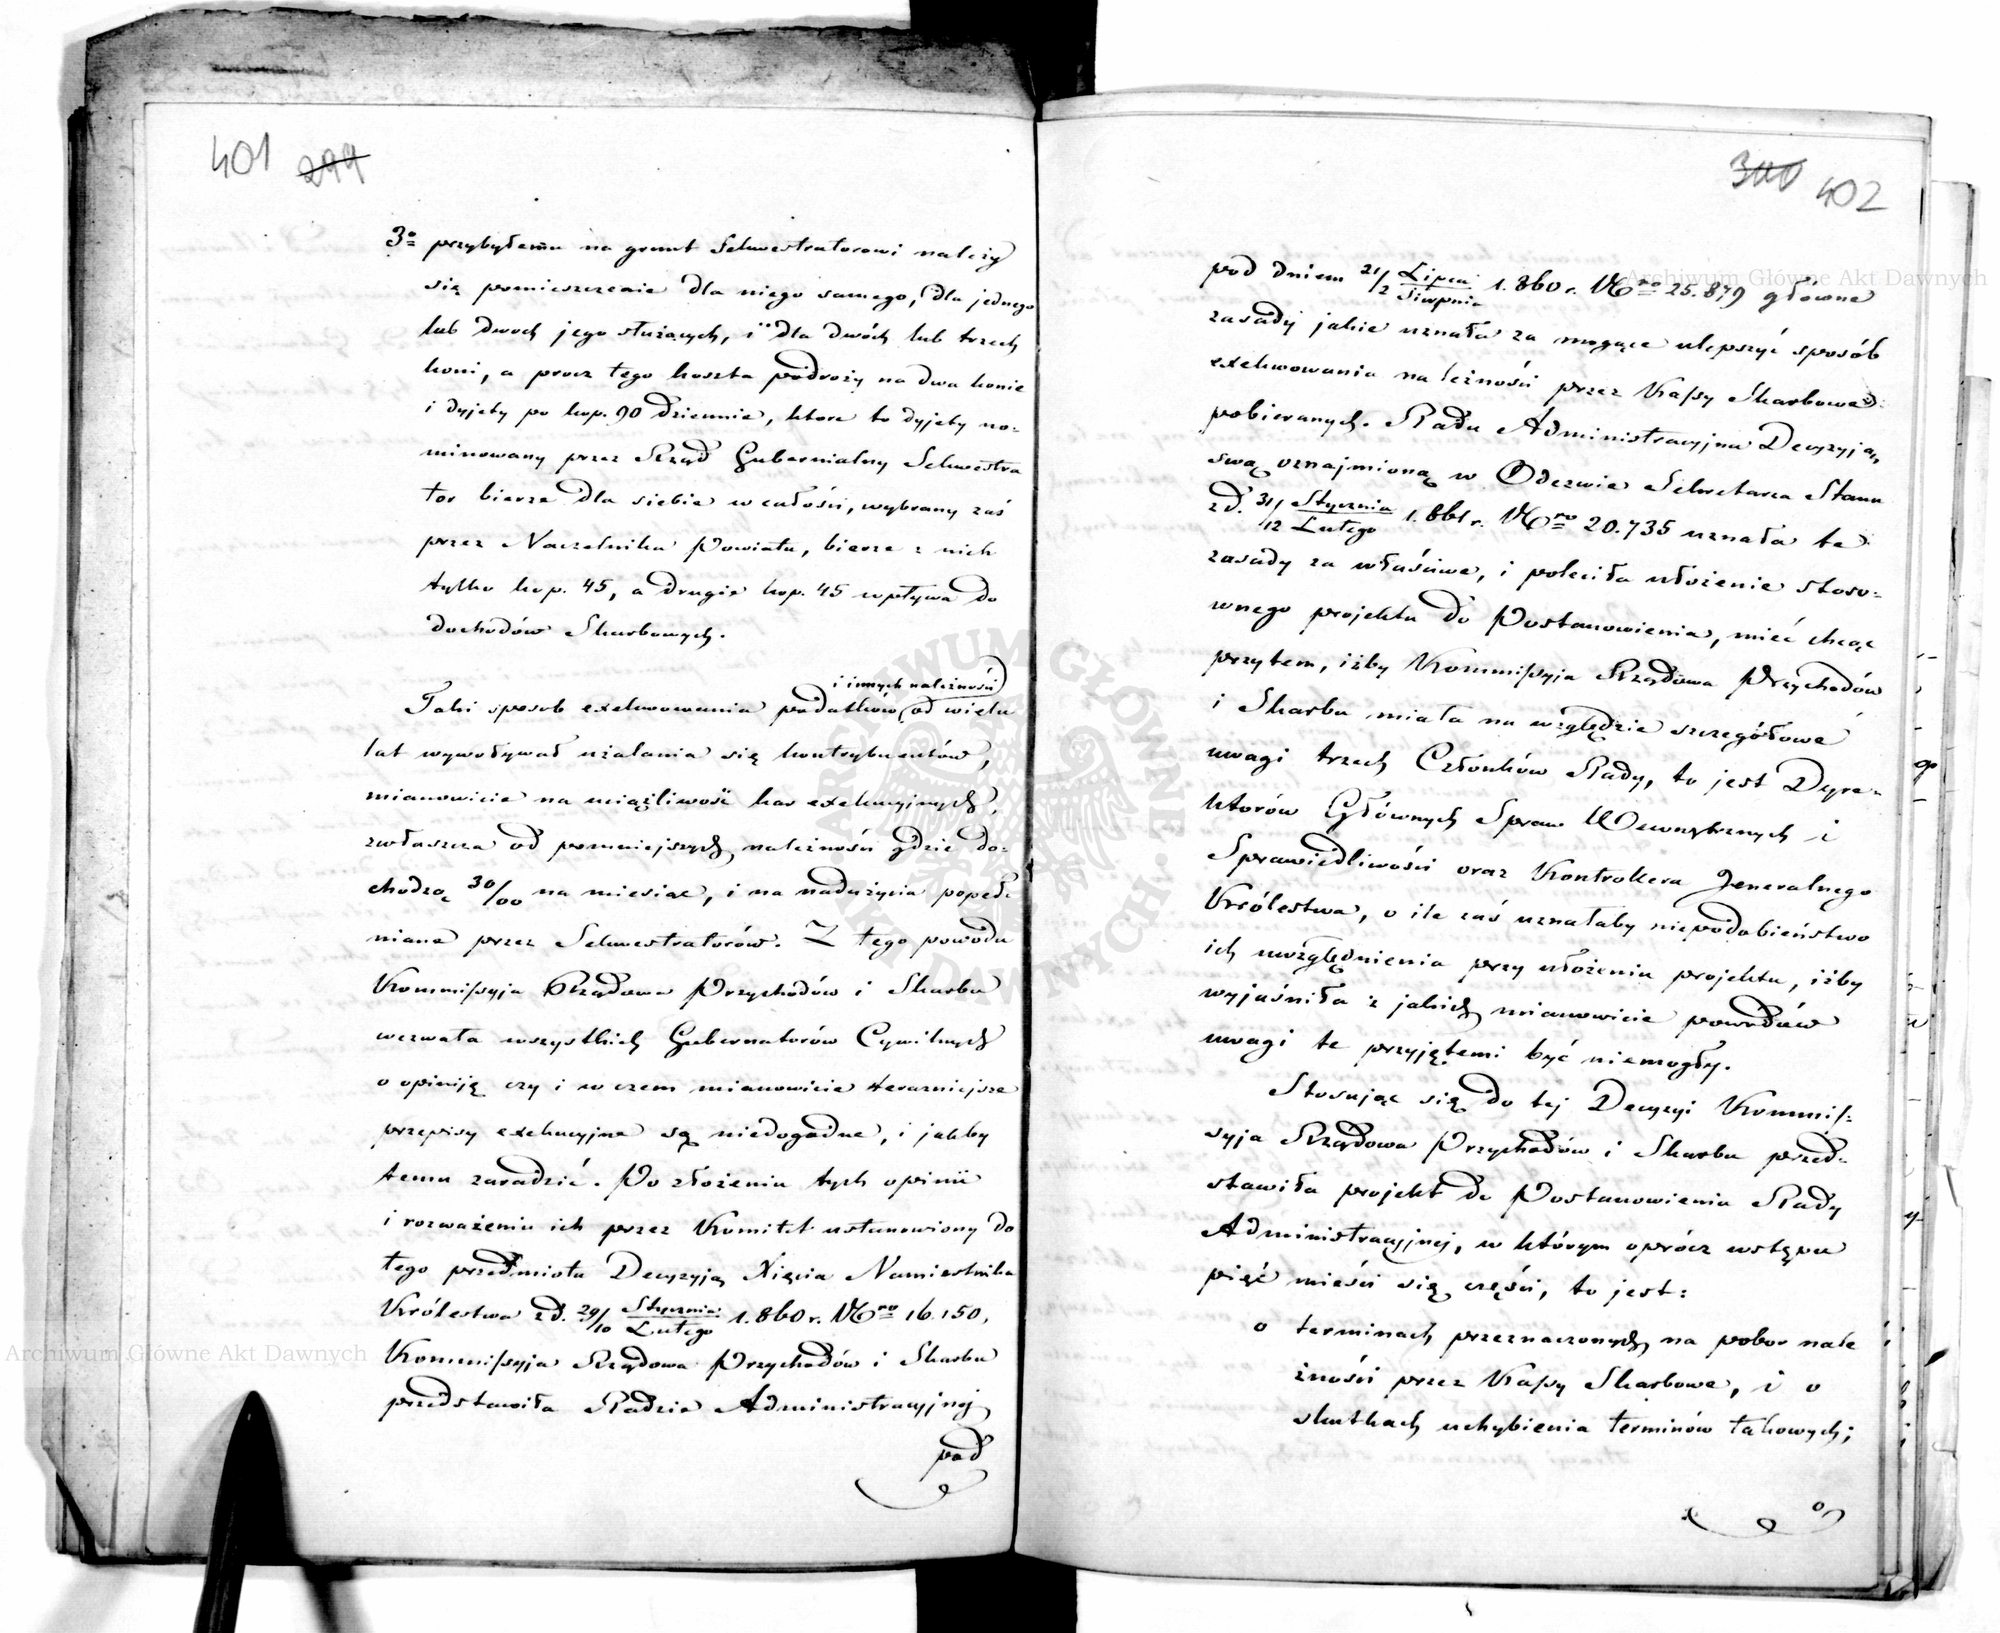 401 299
3o przybyłemu na grunt Sekwestratorowi należy
się pomieszczenie dla niego samego, dla jednego
lub dwóch jego służących, i dla dwóch lub trzech
koni, a procz tego koszta podroży na dwa konie
i dyjety po kop. 90 dziennie, które to dyjety no=
minowany przez Rząd Gubernialny Sekwestra
tor bierze dla siebie w całości, wybrany zaś
przez Naczelnika Powiatu, bierze z nich
tylko kop. 45, a drugie kop. 45 wpływa do
dochodów Skarbowych.
i innych należności
Taki sposob exekwowania podatków od wielu
lat wywoływał użalania się kontrybuentów,
mianowicie na uciążliwość kar exekucyjnych,
zwłaszcza od pomniejszych należności gdzie do=
chodzą 30/00 na miesiąc, i na nadużycia popeł=
niane przez Sekwestratorów. Z tego powodu
Kommissyja Rządowa Przychodów i Skarbu
wezwała wszystkich Gubernatorów Cywilnych
o opiniję czy i w czem mianowicie teraźniejsze
przepisy exekucyjne są niedogodne, i jakby
temu zaradzić. Po złożeniu tych opinii
i rozważeniu ich przez Komitet ustanowiony do
tego przedmiotu Decyzyją Xięcia Namiestnika
Królestwa z d. 29/10 Stycznia/Lutego 1.860 r. Nro 16.150,
Kommissyja Rządowa Przychodów i Skarbu
przedstawiła Radzie Administracyjnej
pod
300 402
pod dniem 21/2 Lipca/Sierpnia 1.860 r. Nro 25.879 główne
zasady jakie uznała za mogące ulepszyć sposób
exekwowania należności przez Kassy Skarbowe
pobieranych. Rada Administracyjna Decyzyją
swą oznajmioną w Odezwie Sekretarza Stanu
z d. 31/12 Stycznia/Lutego 1.861 r. Nro 20.735 uznała te
zasady za właściwe, i poleciła ułożenie stoso=
wnego projektu do Postanowienia, mieć chcąc
przytem, iżby Kommissyja Rządowa Przychodów
i Skarbu miała na względzie szczegółowe
uwagi trzech Członków Rady, to jest Dyre=
ktorów Głównych Spraw Wewnętrznych i
Sprawiedliwości oraz Kontrollera Jeneralnego
Królestwa, o ile zaś uznałaby niepodobieństwo
ich uwzględnienia przy ułożeniu projektu, iżby
wyjaśniła z jakich mianowicie powodów
uwagi te przyjętemi być niemogły.
Stosując się do tej Decyzyi Kommis=
syja Rządowa Przychodów i Skarbu przed=
stawiła projekt do Postanowienia Rady
Administracyjnej, w którym oprócz wstępu
pięć mieści się części, to jest:
o terminach przeznaczonych na pobor nale
żności przez Kassy Skarbowe, i o
skutkach uchybienia terminów takowych;
o
Archiwum Główne Akt Dawnych
Archiwum Główne Akt Dawnych
ARCHIWUM GŁÓWNE AKT DAWNYCH